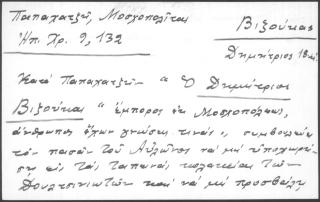 Παπαχατζῆ, Μοσχοπολῖται
Βιζούκας
Ἠπ. Χρ. 9, 132
Δημήτριος 18
Κατὰ Παπαχατζῆ " Ὁ Δημήτριος
Βιζούκας " ἔμπορος ἐκ Μοσχοπόλεως,
ἄνθρωπος ἔχων γνώσεις τινάς", συμβουλεύει
τὸν πασᾶν τοῦ Αὐλῶνος νὰ μὴ ὑποχωρή-
σῃ εἰς τὰς ταπεινὰς κολακείας τῶν
Δουλτσινιωτῶν καὶ νὰ μὴ προσβάλῃ